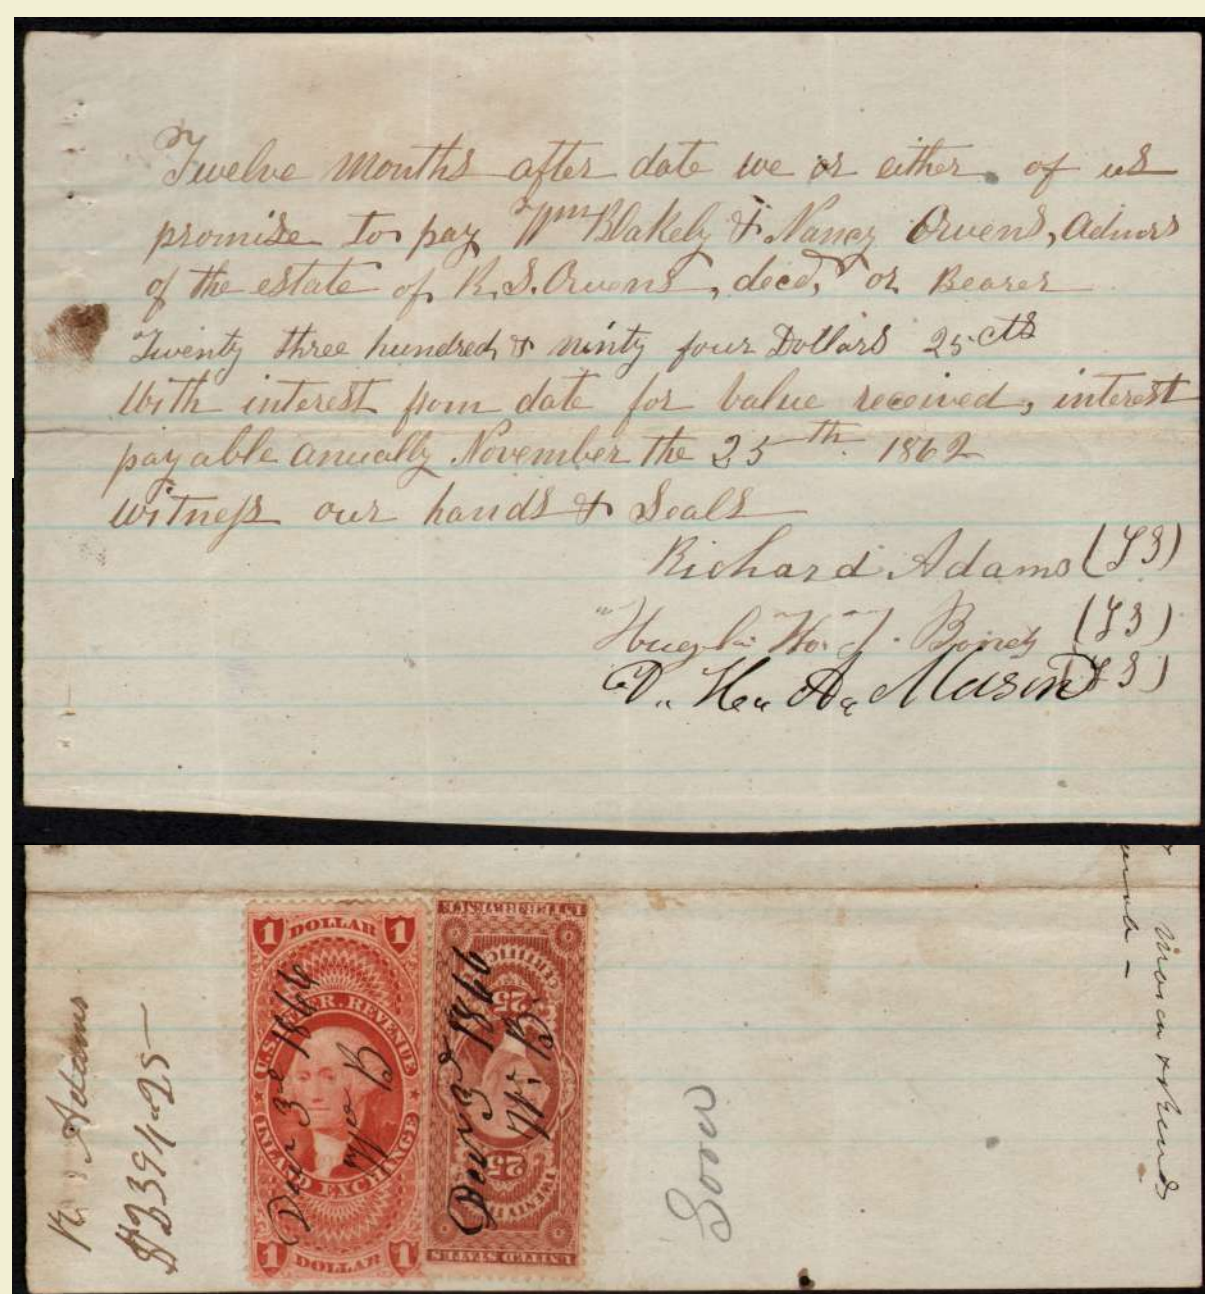 Twelve Months after date we or either of us
promise to pay Wm Blakely & Nancy Owens, Admors
of the estate of R. S. Owens, decd, or Bearer
Twenty three hundred & ninty four Dollars 25 cts
With interest from date for value received, interest
payable anually November the 25th 1862
witness our hands & Seals
Richard Adams (LS)
Hugh W. T. Boney (LS)
D. H. A. Mason (LS)
Adams
$2394-25
1 DOLLAR 1
U.S. INTER. REVENUE
INLAND EXCHANGE
1 DOLLAR 1
Dec 3d 1866
Wm B
UNITED STATES
25
25
INTER. REVENUE
Dec 3d 1866
W. B.
Good